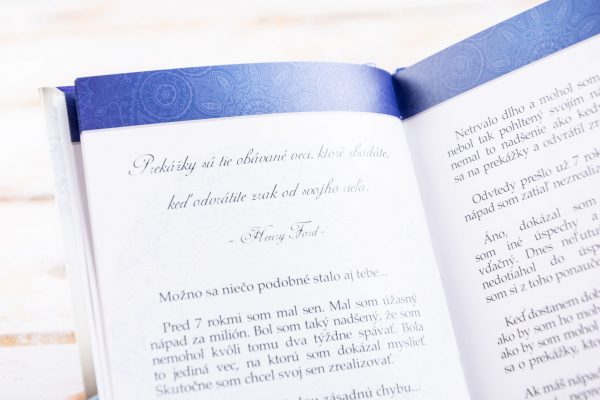 Prekážky sú tie obávané veci, ktoré zbadáte,
keď odvrátite zrak od svojho cieľa.
- Henry Ford -
Možno sa niečo podobné stalo aj tebe...
Pred 7 rokmi som mal sen. Mal som úžasný
nápad za milión. Bol som taký nadšený, že som
nemohol kvôli tomu dva týždne spávať. Bola
to jediná vec, na ktorú som dokázal myslieť.
Skutočne som chcel svoj sen zrealizovať.
zásadnú chybu...
Netrvalo dlho a mohol som
nebol tak pohltený svojím
nemal to nadšenie ako
sa na prekážky a odvrátil
Odvtedy prešlo už 7
nápad som zatiaľ
Áno, dokázal som
som iné úspechy a
vďačný. Dnes
nedotiahol do
som si z toho
Keď dostanem
ako by som ho
ako by som mohol
sa o prekážky,
Ak máš nápad